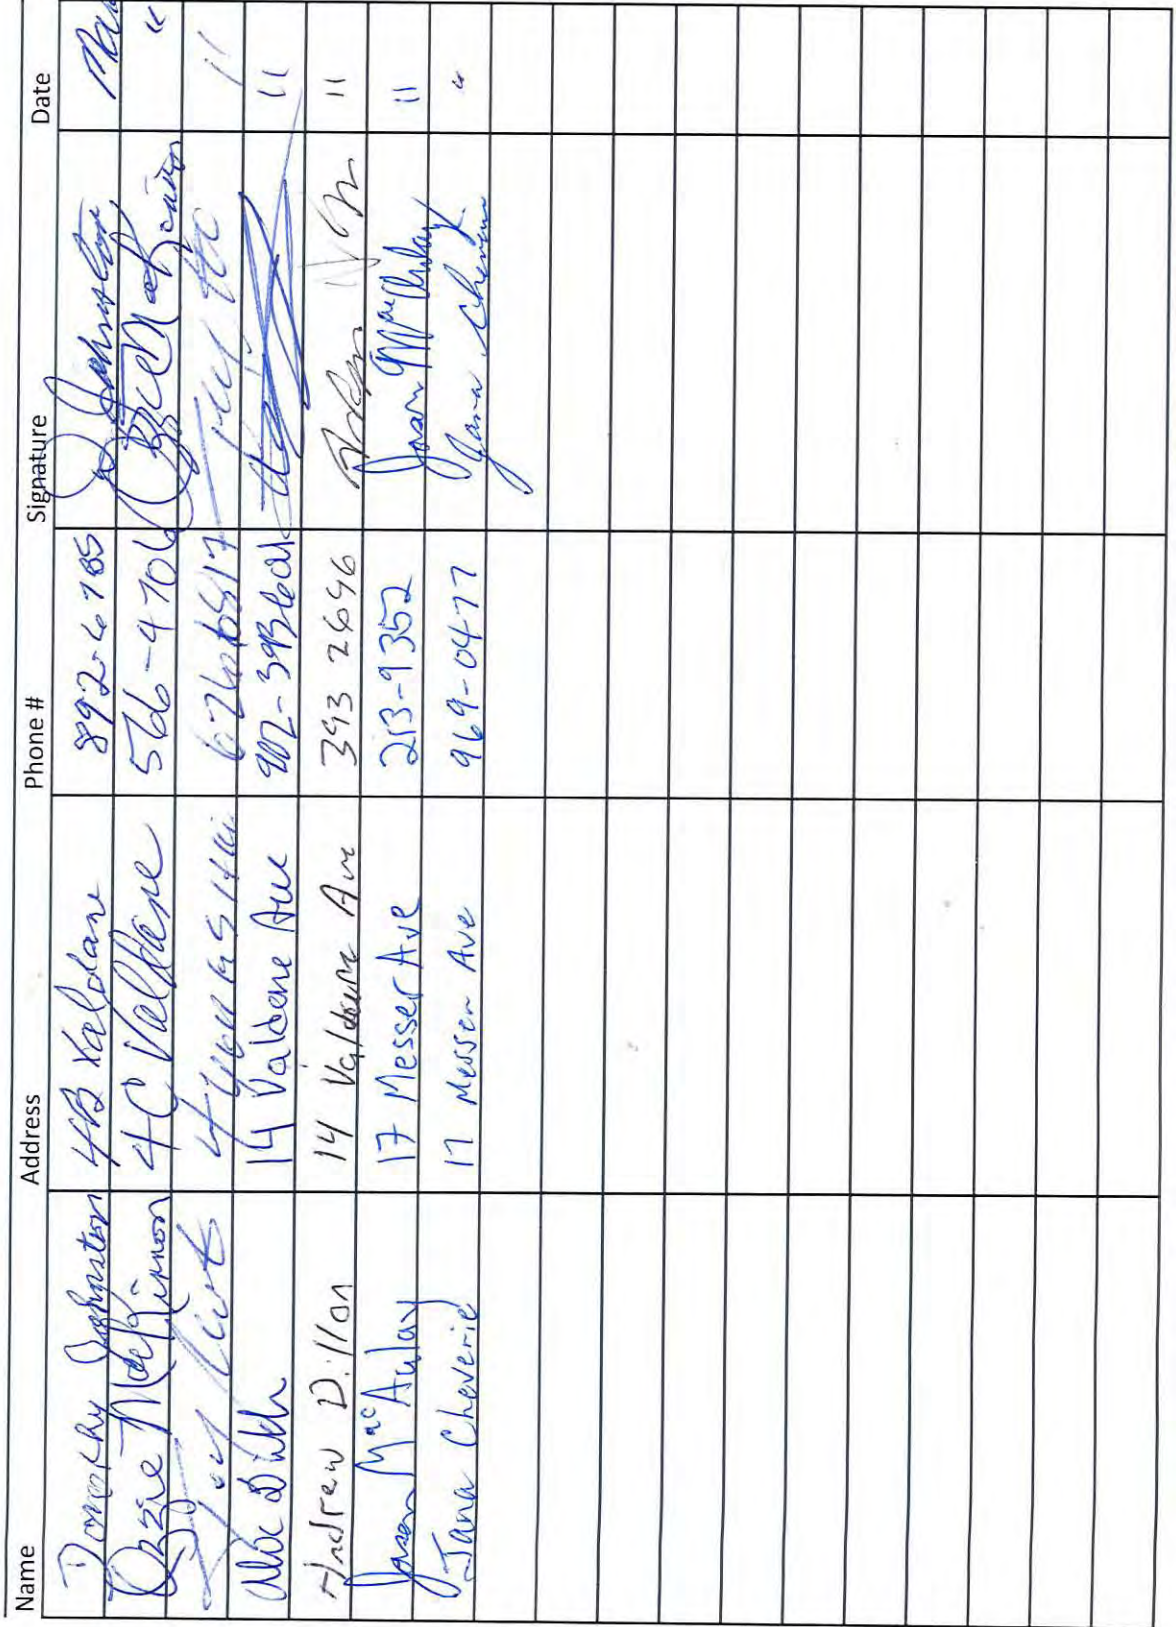 Name Address Phone # Signature Date
Dorothy Johnston 4B Valdane 892-6785 D Johnston
Ozzie MacKinnon 4C Valdane 566-4706 Ozzie MacKinnon "
4 "
14 Valdane Ave 902-393 "
Andrew Dillon 14 Valdane Ave 393 2696 "
Jason MacAulay 17 Messer Ave 213-9352 Jason MacAulay "
Jana Cheverie 17 Messer Ave 969-0477 Jana Cheverie "